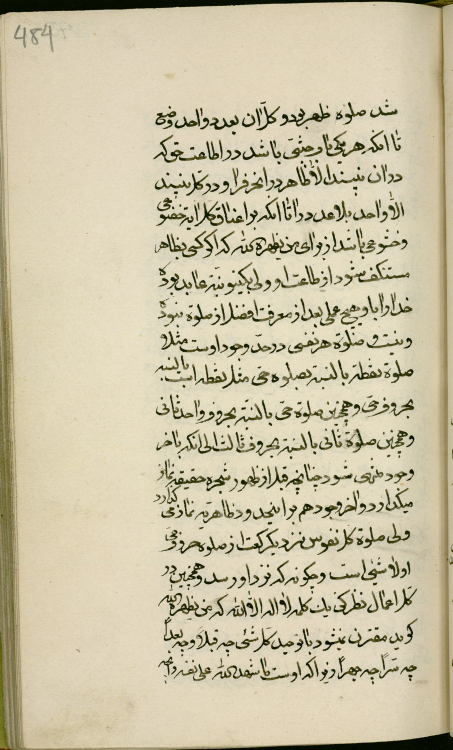 484
شد صلوة ظهر بود و کل آن بعدد واحد وضع
تا آنکه هر یکی باب جنتی باشد در اطاعت حق که
در آن نبیند الا ظاهر در آنجا فرا و در کل نبیند
الا واحد بلا عدد را تا آنکه بر اعناق کل آیة خضوعی
و خشوعی باشد از برای من یظهره الله که اگر کسی بظاهر
مستکف شود از طاعت او ولی بکینونیته عابد بوده
خدا را با او هیچ عملی بعد از معرفت افضل از صلوة نبوده
و نیست و صلوة هر نفسی در حد وجود اوست مثلا
صلوة نقطه بالنسبة بصلوة حی مثل نقطه است بالنسبه
بحروف حی و همچنین صلوة حی بالنسبة بحروف واحد ثانی
و همچنین صلوة ثانی بالنسبة بحروف ثالث الی آنکه بآخر
وجود منتهی شود چنانچه قبل از ظهور شجره حقیقت نماز
میگذارد و آخر وجود هم بر این حدود ظاهریه نماز می گذارد
ولی صلوة کل نفوس نزد یک رکعت از صلوة حروف حی
اولا شیئ است و چگونه که نزد او رسد و همچنین در
کل اعمال نظر کن یک کلمه لا اله الا الله که من یظهره الله
گوید مقترن نمیشود با توحید کل شیئ چه قبل و چه بعد
چه سرا چه جهرا زیرا که اوست ما شهد الله علی نفسه